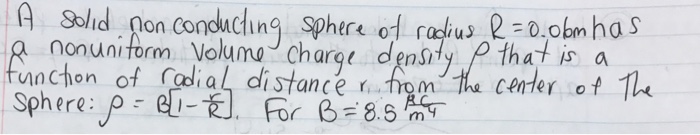 A solid non conducting sphere of radius R = 0.06m has
a nonuniform volume charge density ρ that is a
function of radial distance r, from the center of The
Sphere: ρ = B[1-r/R]. For B = 8.5 μC/m⁴